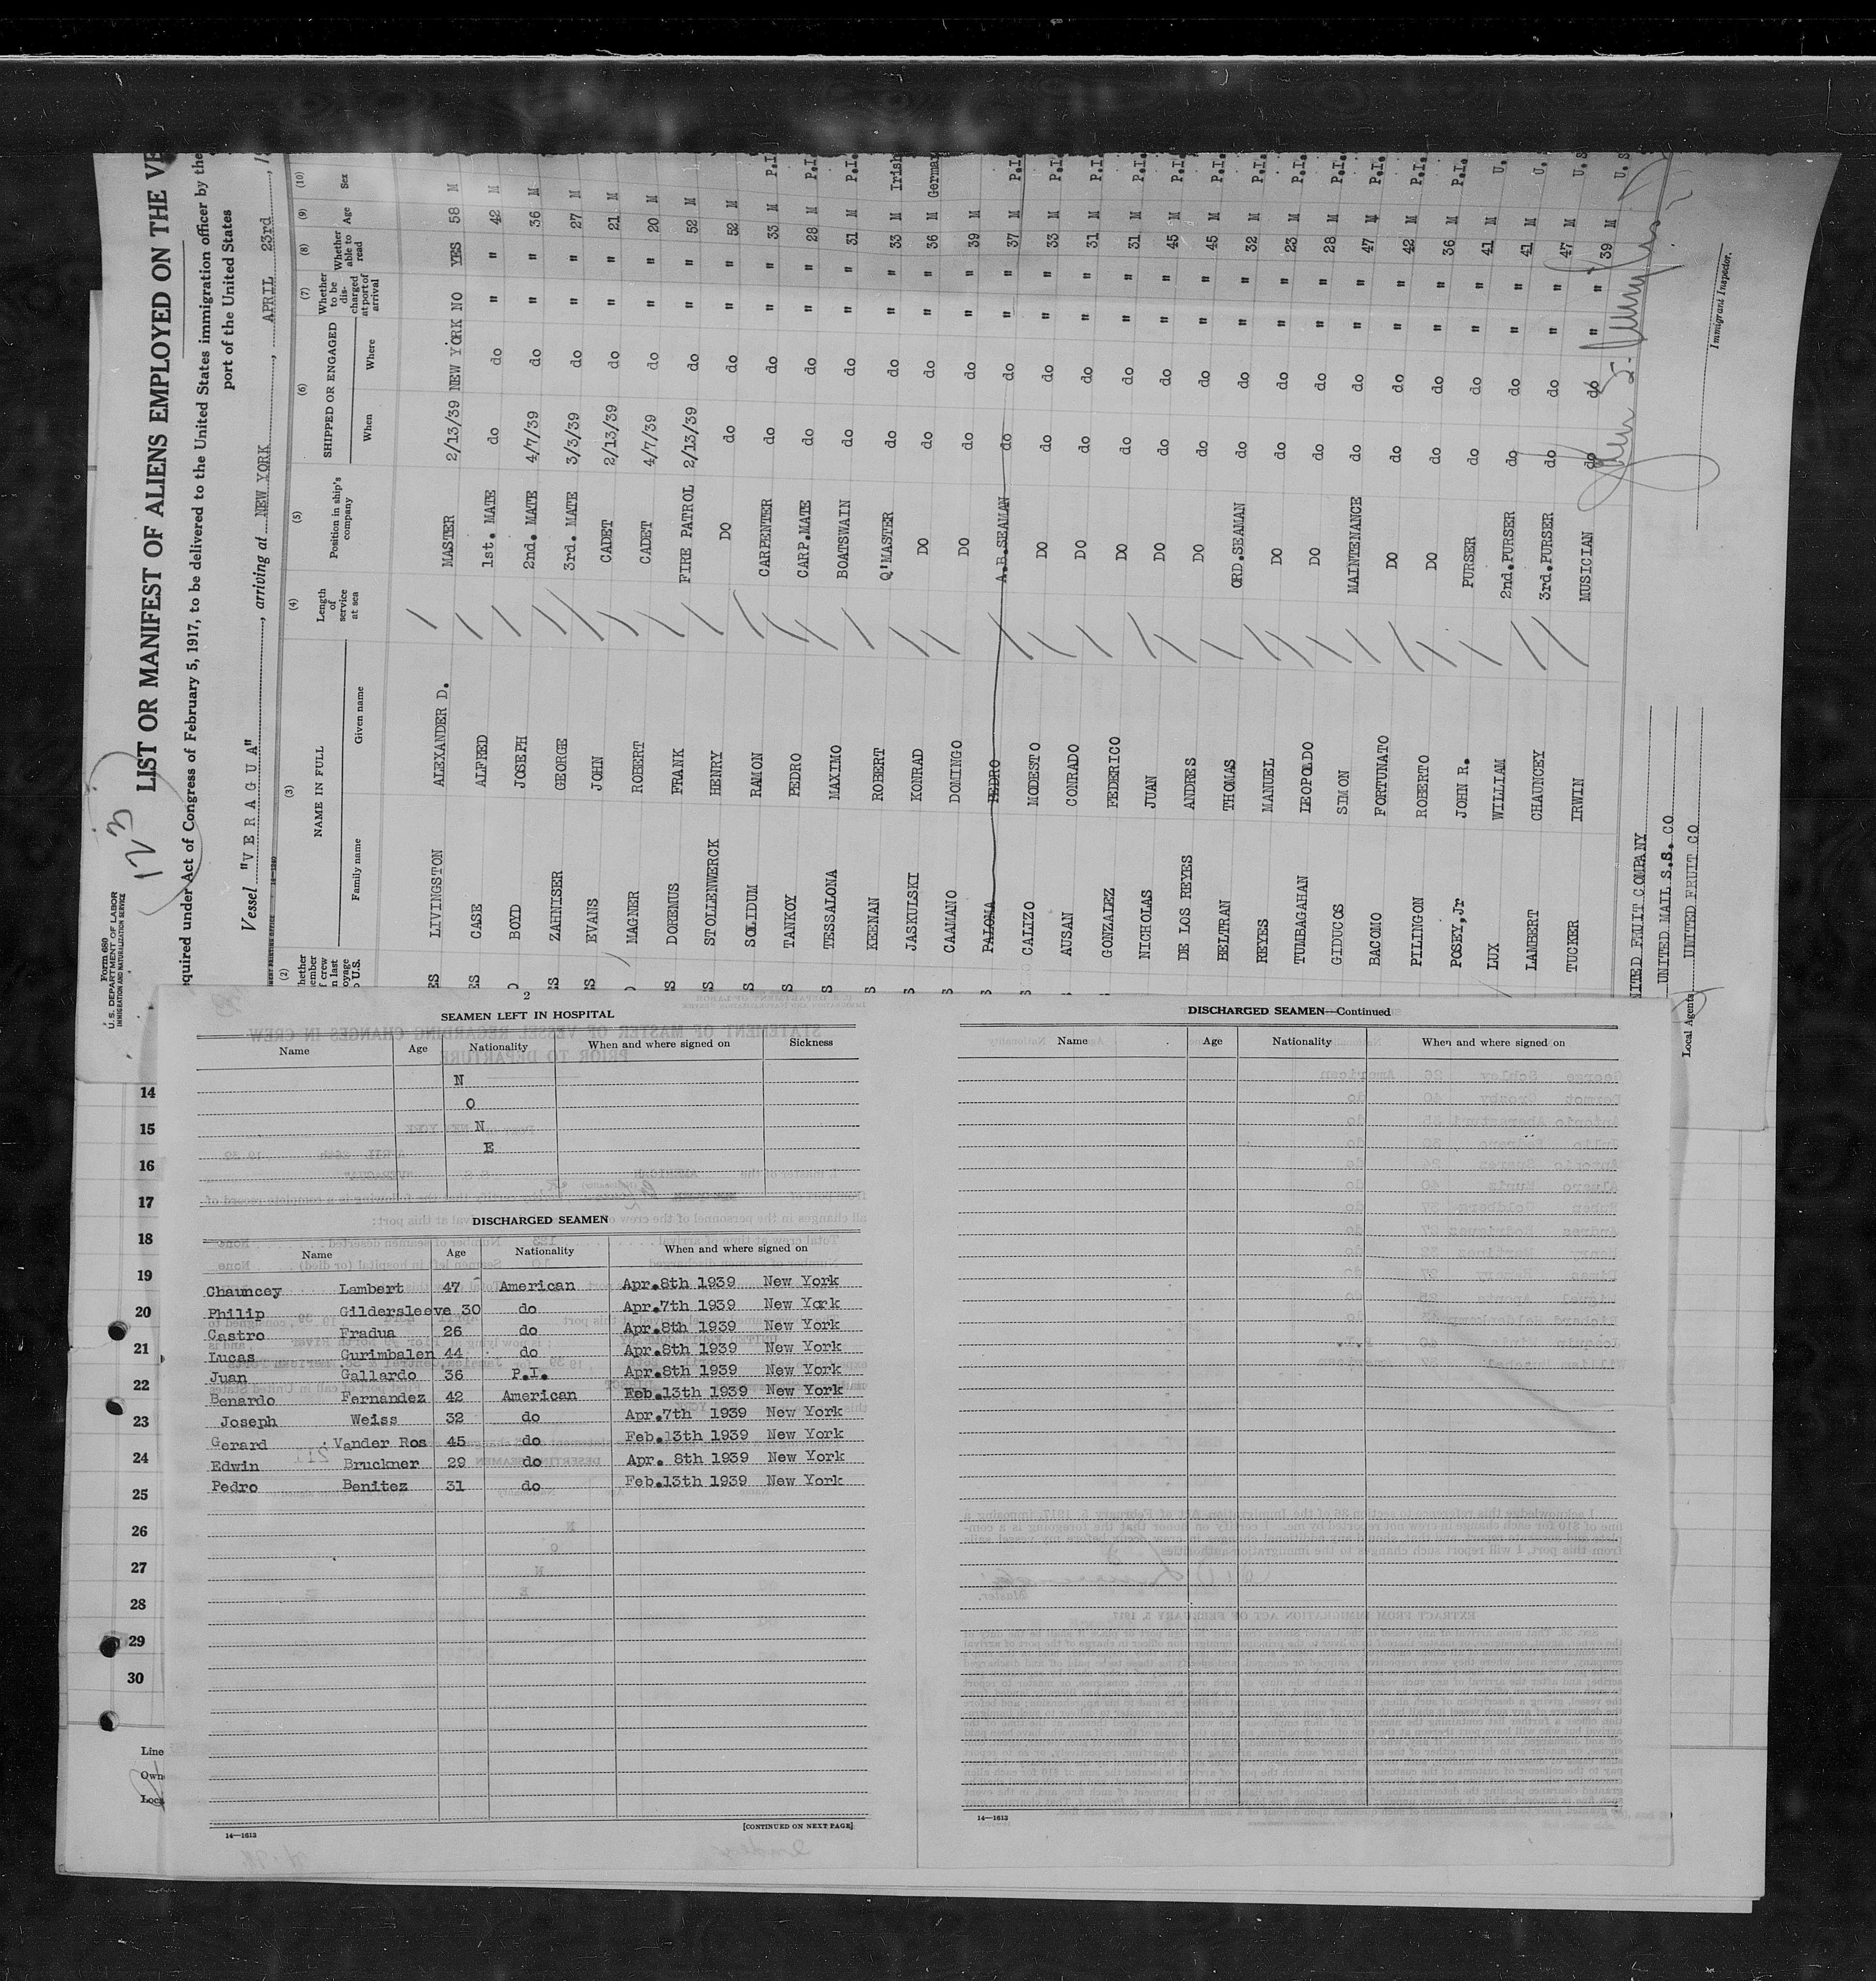 Form 680
U. S. DEPARTMENT OF LABOR
IMMIGRATION AND NATURALIZATION SERVICE
123
LIST OR MANIFEST OF ALIENS EMPLOYED ON THE VE
equired under Act of Congress of February 5, 1917, to be delivered to the United States immigration officer by the
port of the United States
Vessel "V E R A G U A", arriving at NEW YORK, APRIL 23rd,
(2) (3) (4) (5) (6) (7) (8) (9) (10)
NAME IN FULL
Family name Given name
Length of service at sea
Position in ship's company
SHIPPED OR ENGAGED
When Where
Whether to be discharged at port of arrival
Whether able to read
Age
Sex
LIVINGSTON ALEXANDER D. MASTER 2/13/39 NEW YORK NO YES 58 M
CASE ALFRED 1st. MATE do do " " 42 M
BOYD JOSEPH 2nd. MATE 4/7/39 do " " 36 M
ZAHNISER GEORGE 3rd. MATE 3/3/39 do " " 27 M
EVANS JOHN CADET 2/13/39 do " " 21 M
MAGNER ROBERT CADET 4/7/39 do " " 20 M
DOREMUS FRANK FIRE PATROL 2/13/39 do " " 52 M
STOLLENWERCK HENRY DO do do " " 52 M
SOLIDUM RAMON CARPENTER do do " " 33 M P.I.
TANKOY PEDRO CARP.MATE do do " " 28 M P.I.
TESSALONA MAXIMO BOATSWAIN do do " " 31 M P.I.
KEENAN ROBERT Q'MASTER do do " " 33 M Irish
JASKULSKI KONRAD DO do do " " 36 M German
CAAMANO DOMINGO DO do do " " 39 M
PALOMA PEDRO A.B.SEAMAN do do " " 37 M P.I.
CALIZO MODESTO DO do do " " 33 M P.I.
AUSAN CONRADO DO do do " " 31 M P.I.
GONZALEZ FEDERICO DO do do " " 31 M P.I.
NICHOLAS JUAN DO do do " " 45 M P.I.
DE LOS REYES ANDRES DO do do " " 45 M P.I.
BELTRAN THOMAS ORD.SEAMAN do do " " 32 M P.I.
REYES MANUEL DO do do " " 23 M P.I.
TUMBAGAHAN LEOPOLDO DO do do " " 28 M P.I.
GIDUCOS SIMON MAINTENANCE do do " " 47 M P.I.
BACOMO FORTUNATO DO do do " " 42 M P.I.
PILINGON ROBERTO DO do do " " 36 M P.I.
POSEY,Jr JOHN R. PURSER do do " " 41 M U.
LUX WILLIAM 2nd.PURSER do do " " 41 M U.
LAMBERT CHAUNCEY 3rd.PURSER do do " " 47 M U.S
TUCKER IRWIN MUSICIAN do do " " 39 M U.S
NITED FRUIT COMPANY
UNITED MAIL S.S. CO
Local Agents UNITED FRUIT CO
Immigrant Inspector.
2
SEAMEN LEFT IN HOSPITAL
Name Age Nationality When and where signed on Sickness
N
O
N
E
DISCHARGED SEAMEN
Name Age Nationality When and where signed on
Chauncey Lambert 47 American Apr.8th 1939 New York
Philip Gildersleeve 30 do Apr.7th 1939 New York
Castro Fradua 26 do Apr.8th 1939 New York
Lucas Gurimbalen 44 do Apr.8th 1939 New York
Juan Gallardo 36 P.I. Apr.8th 1939 New York
Benardo Fernandez 42 American Feb.13th 1939 New York
Joseph Weiss 32 do Apr.7th 1939 New York
Gerard Vander Ros 45 do Feb.13th 1939 New York
Edwin Bruckner 29 do Apr. 8th 1939 New York
Pedro Benitez 31 do Feb.13th 1939 New York
14—1613
[CONTINUED ON NEXT PAGE]
DISCHARGED SEAMEN—Continued
Name Age Nationality When and where signed on
14—1613
14
15
16
17
18
19
20
21
22
23
24
25
26
27
28
29
30
Line
Own
Loca